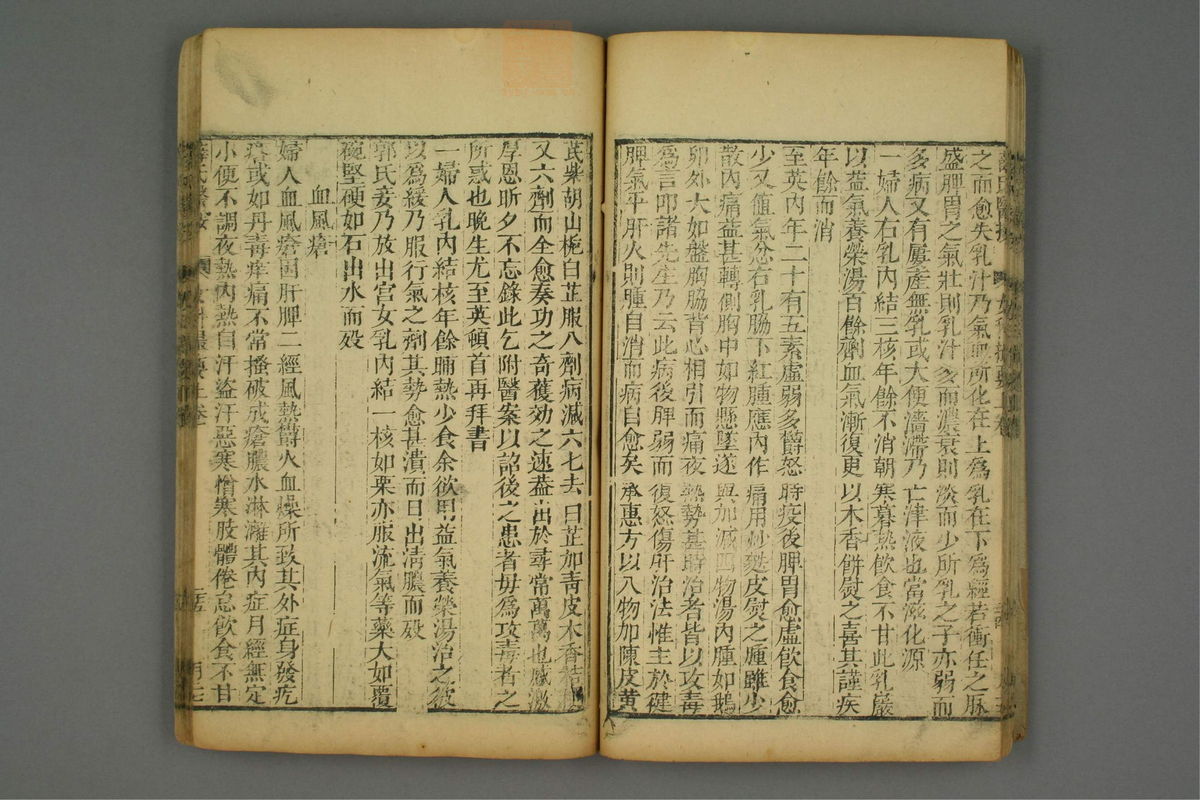 之而愈失乳汁乃氣血所化在上爲乳在下爲經若衝任之脉
盛脾胃之氣壯則乳汁多而濃衰則淡而少所乳之子亦弱而
多病又有屢產無乳或大便濇滯乃亡津液也當滋化源
一婦人右乳內結三核年餘不消朝寒暮熱飲食不甘此乳巖
以益氣養榮湯百餘劑血氣漸復更以木香餅熨之喜其謹疾
年餘而消
至英內年二十有五素虛弱多欝怒時疫後脾胃愈虛飲食愈
少又值氣忿右乳脇下紅腫應內作痛用炒麩皮熨之腫雖少
散內痛益甚轉側胸中如物懸墜遂與加減四物湯內腫如鵝
卵外大如盤胸脇背心相引而痛夜熱勢甚時治者皆以攻毒
爲言叩諸先生乃云此病後脾弱而復怒傷肝治法惟主於健
脾氣平肝火則腫自消而病自愈矣承惠方以八物加陳皮黃
芪柴胡山梔白芷服八劑病減六七去白芷加靑皮木香桔
又六劑而全愈奏功之奇獲効之速葢出於尋常萬萬也感激
厚恩昕夕不忘錄此乞附醫案以詔後之患者毋爲攻毒者之
所惑也晚生尤至英頓首再拜書
一婦人乳內結核年餘晡熱少食余欲用益氣養榮湯治之彼
以爲緩乃服行氣之劑其勢愈甚潰而日出清膿而歿
郭氏妾乃放出宮女乳內結一核如栗亦服流氣等藥大如覆
碗堅硬如石出水而歿
血風瘡
婦人血風瘡因肝脾二經風熱欝火血燥所致其外症身發疙
瘩或如丹毒痒痛不常搔破成瘡膿水淋漓其內症月經無定
小便不調夜熱內熱自汗盜汗惡寒憎寒肢體倦怠飲食不甘